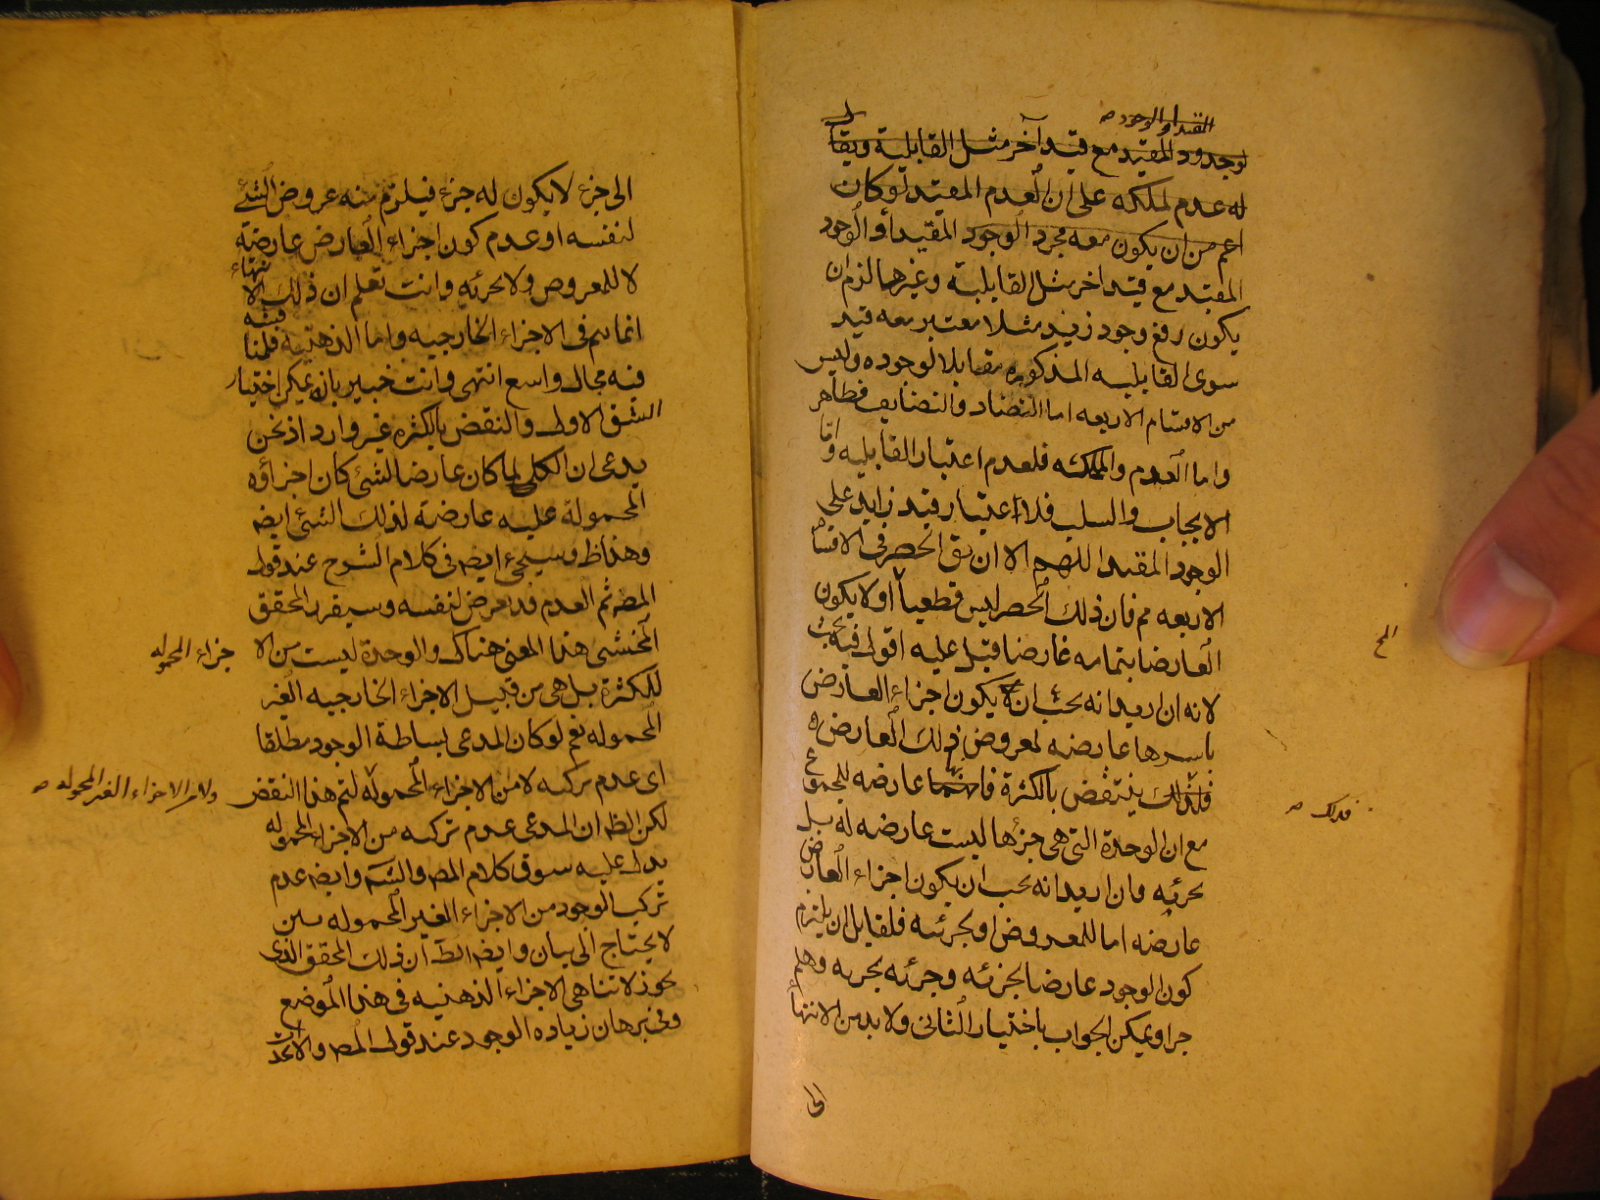 القيد او الوجود
لوجود المقيد مع قيد آخر مثل القابلية ويقال
له عدم لملكه على ان العدم المقيد لو كان
اعم من ان يكون معه مجرد الوجود المقيد أو الوجود
المقيد مع قيد اخر مثل القابلية وغيرها لزم ان
يكون رفع وجود زيد مثلا معتبر معه قيد
سوى القابليه المذكوره مقابلا لوجوده وليس
من الاقسام الاربعه اما التضاد والتضايف فظاهر
واما العدم والملكه فلعدم اعتبار القابليه واما
الايجاب والسلب فلا اعتبار قيد زايد على
الوجود المقيد اللهم الا ان يق الحصر في الاقسام
الاربعه مم فان ذلك الحصر ليس قطعيا أو لا يكون
العارضا بتمامه عارضا قيل عليه اقول فيه بحث
لانه ان اريد انه يجب ان لا يكون اجزاء العارض
باسرها عارضه لمعروض ذلك العارض
فلذلك ينتقض بالكثرة فانها عارضه للمجموع
مع ان الوحدة التي هي جزؤها ليست عارضه له بل
لجزئه وان اريد انه يجب ان يكون اجزاء العارض
عارضه اما للمعروض او لجزئه فلقايل ان يلتزم
كون الوجود عارضا لجزئه وجزئه لجزئه وهلم
جرا ويمكن الجواب باختيار الثاني ولا بد من الانتهاء
الى
فذلك
الى جزء لا يكون له جزء فيلزم منه عروض الشئ
لنفسه او عدم كون اجزاء العارض عارضة
لا للمعروض ولا لجزئه وانت تعلم ان ذلك الانتهاء
انما يتم في الاجزاء الخارجيه واما الذهنية فلمنا فيه
فيه مجال واسع انتهى وانت خبير بانه يمكن اختيار
الشق الاول والنقض بالكثره غير وارد اذ نحن
يدعى ان الكلى لما كان عارضا لشئ كان اجزاؤه
المحمولة عليه عارضة لذلك الشئ ايضه
وهذا ظ وسيجئ ايضه في كلام الشرح عند قول
المصه ثم العدم قد يعرض لنفسه وسيقرر المحقق
المحشى هذا المعنى هناك والوحدة ليست من الا جزاء المحموله
للكثرة بل هى من قبيل الاجزاء الخارجيه الغير
المحموله نعم لو كان المدعى بساطة الوجود مطلقا
اى عدم تركبه لا من الاجزاء المحمولة لتم هذا النقض
ولا من الاجزاء الغير المحموله
لكن الظ ان المدعى عدم تركبه من الاجزاء المحموله
يدل عليه سوق كلام المصه والشه وايضه عدم
تركب الوجود من الاجزاء الغير المحموله بين
لا يحتاج الى بيان وايضه الظ ان ذلك المحقق الذى
يجوز لا تناهى الاجزاء الذهنيه في هذا الموضع
وفي برهان زياده الوجود عند قول المصه